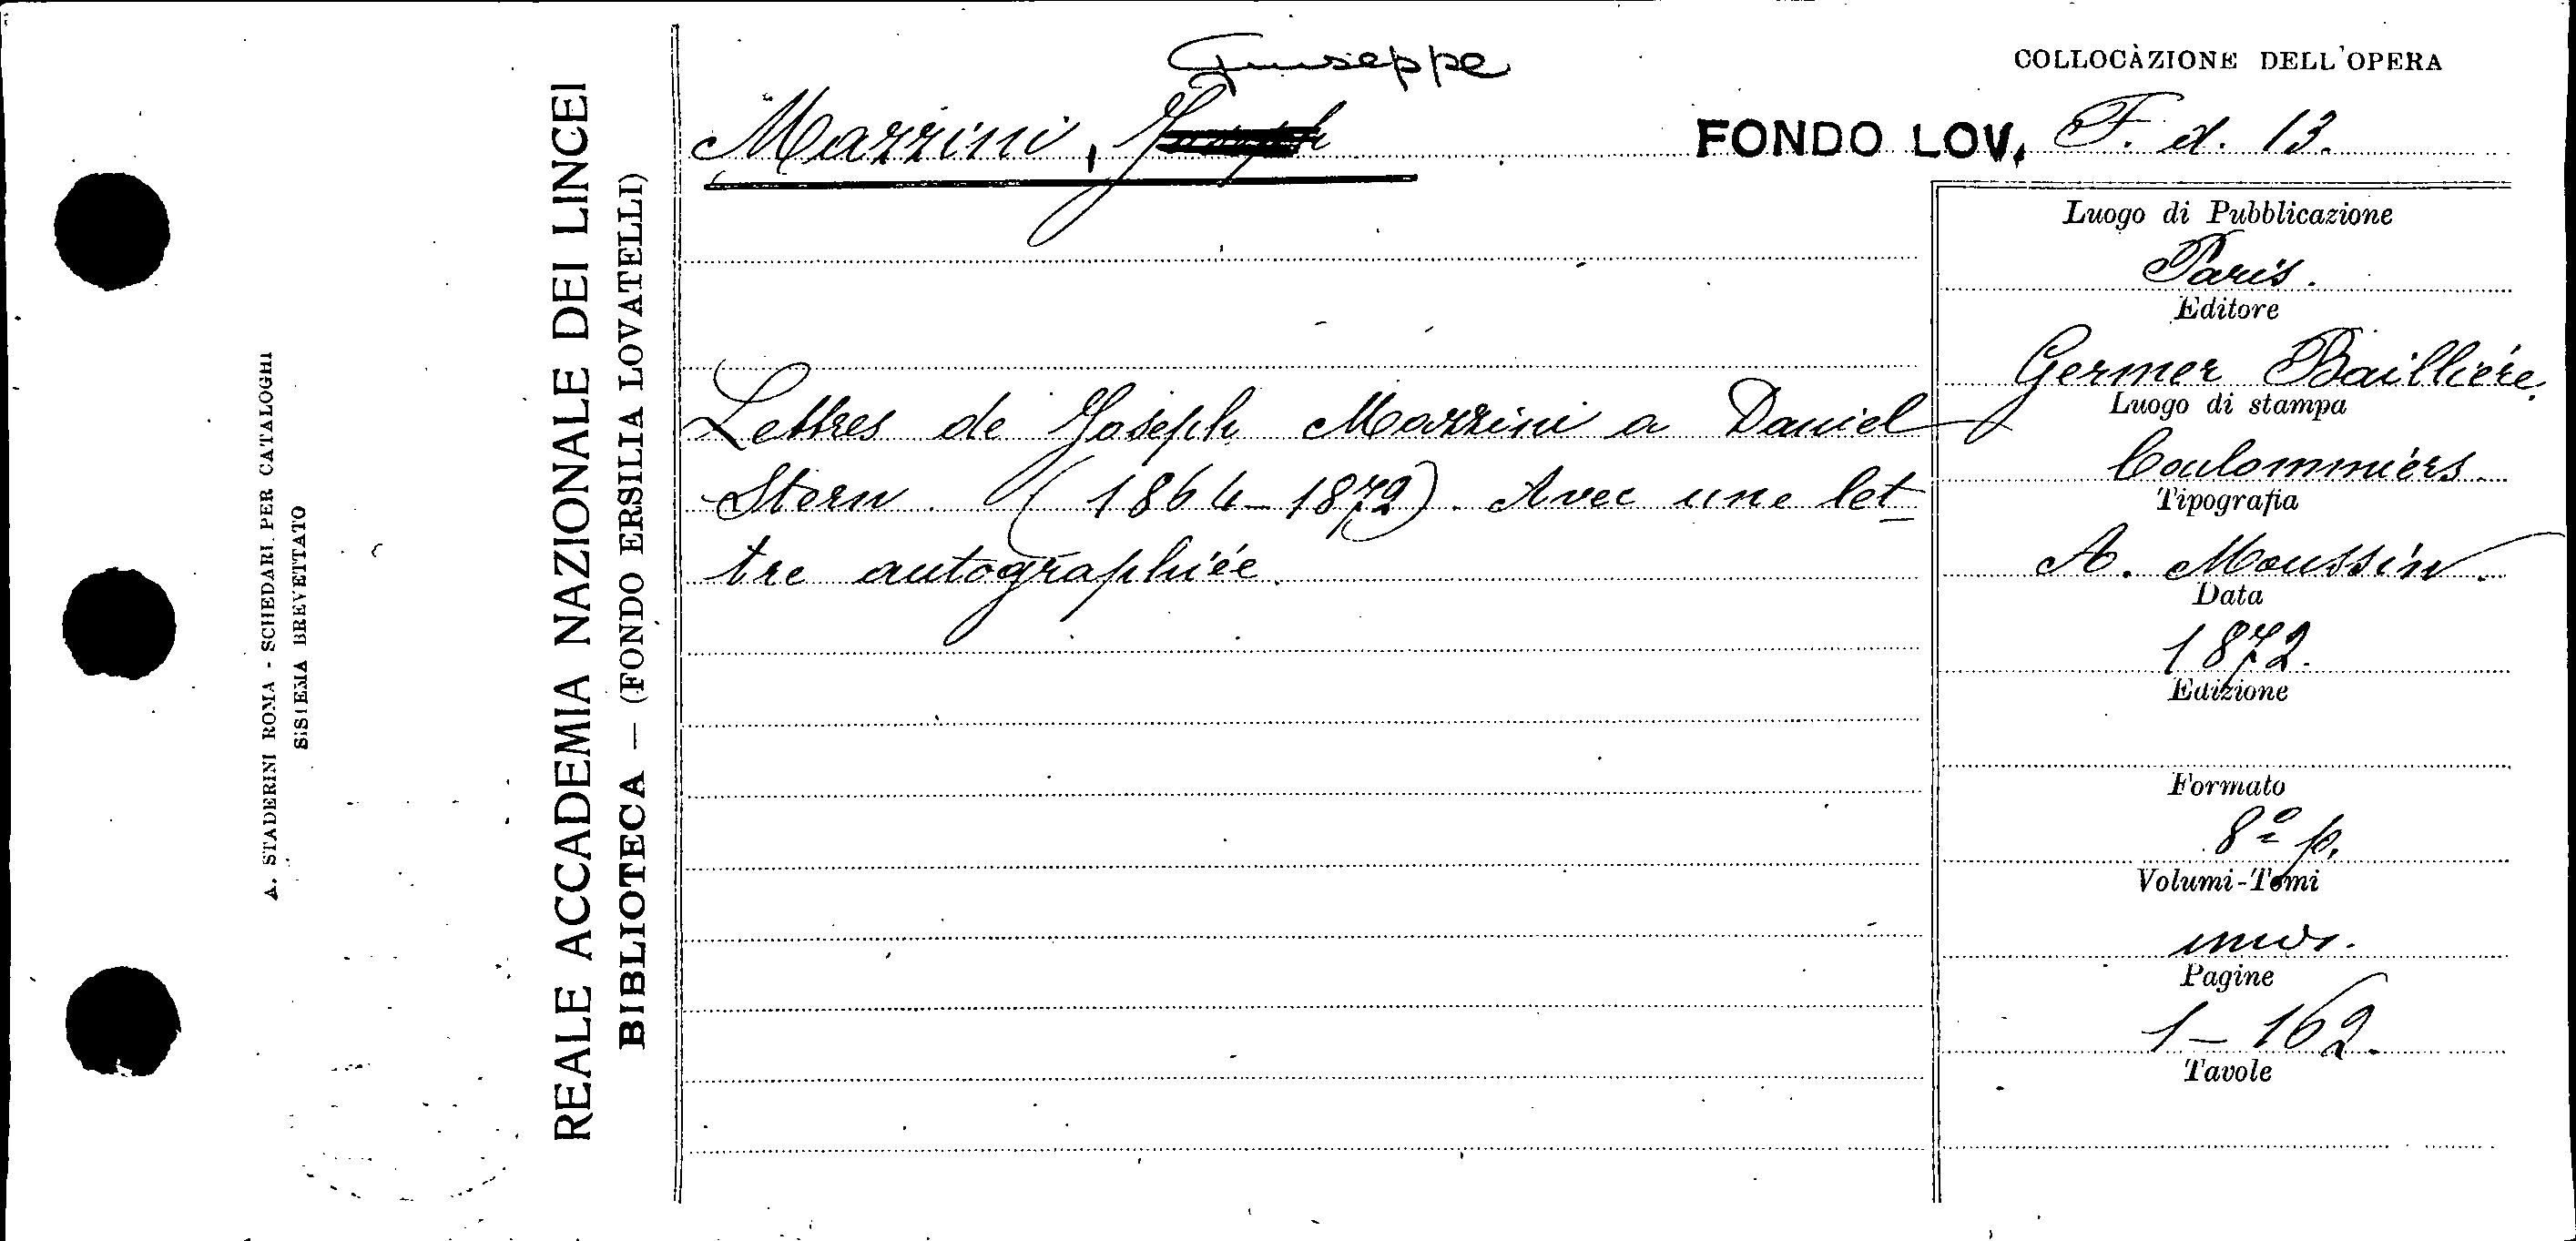 A. STADERINI ROMA - SCHEDARI PER CATALOGHI
SISTEMA BREVETTATO
REALE ACCADEMIA NAZIONALE DEI LINCEI
BIBLIOTECA — (FONDO ERSILIA LOVATELLI)
Giuseppe
Mazzini, Joseph
COLLOCAZIONE DELL'OPERA
FONDO LOV. F. d. 13.
Lettres de Joseph Mazzini a Daniel
Stern. (1864-1872). Avec une let-
tre autographiée.
Luogo di Pubblicazione
Paris.
Editore
Germer Baillière.
Luogo di stampa
Coulommiers.
Tipografia
A. Moussin.
Data
1872.
Edizione
Formato
8º p.
Volumi-Tomi
unos.
Pagine
1-162.
Tavole